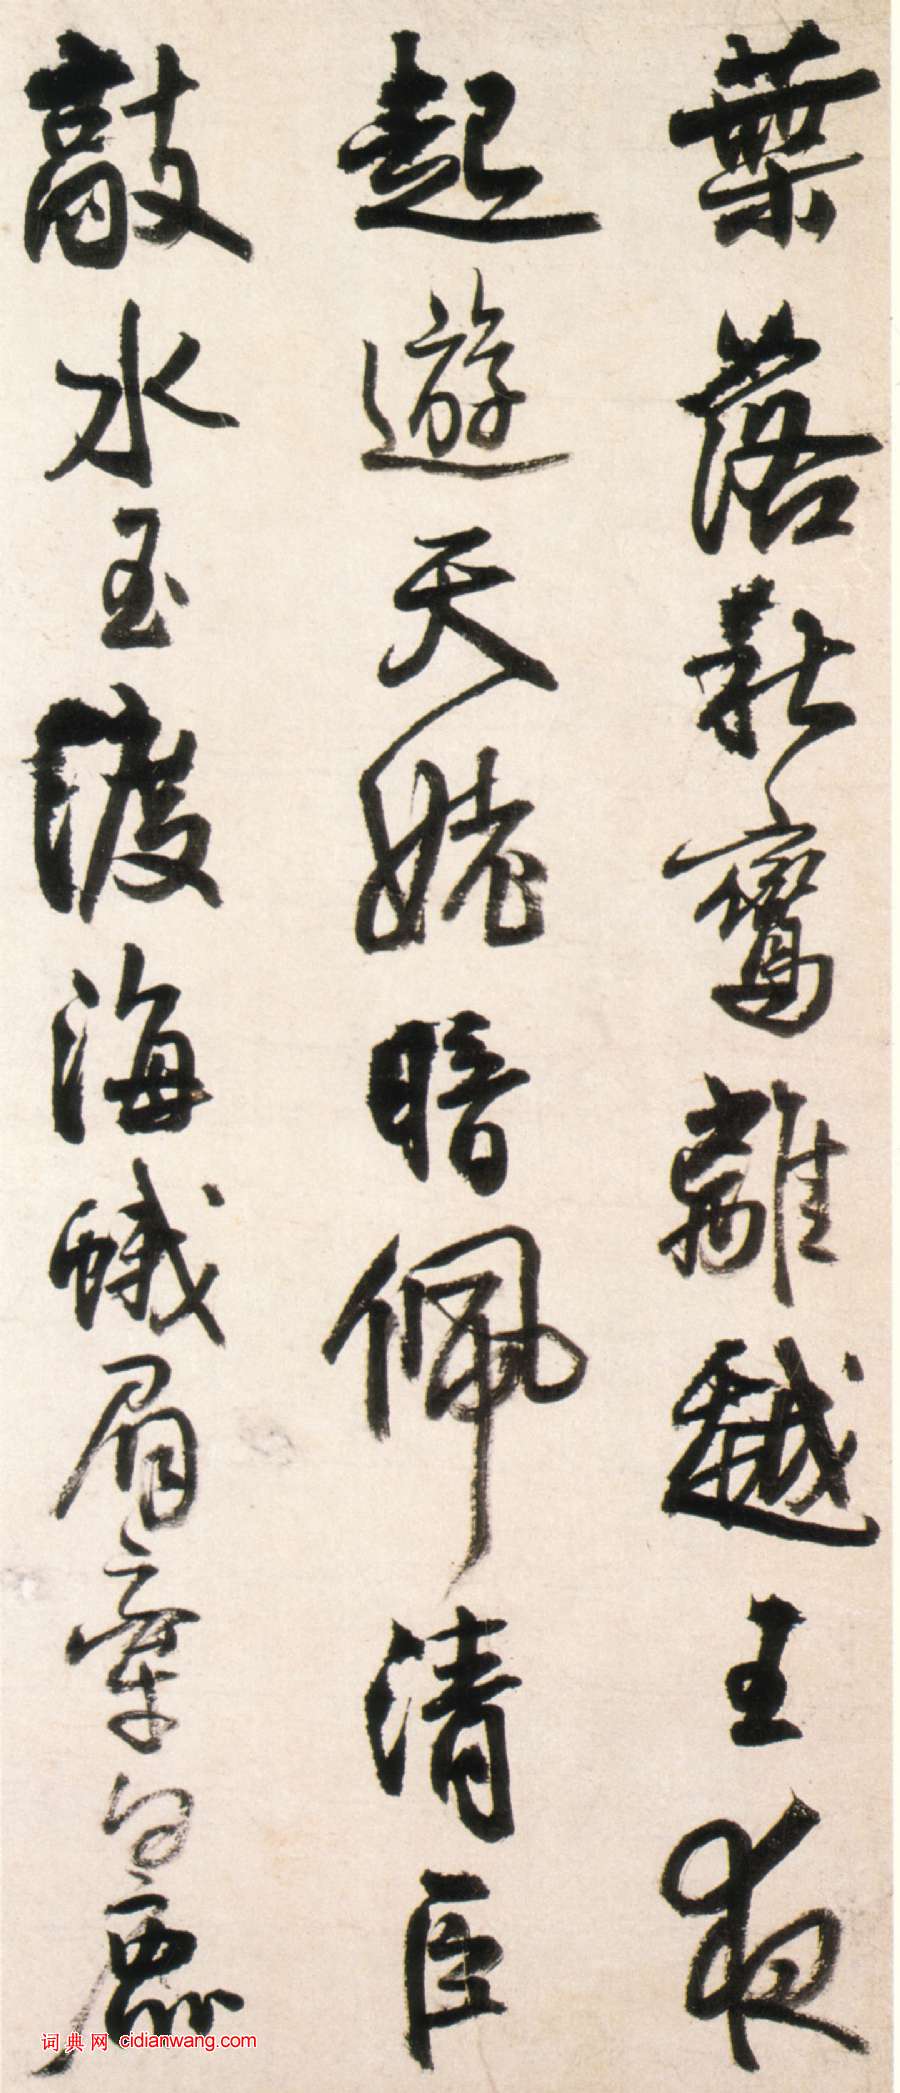 葉落秋鸞離越王夜
起遊天姥暗佩清臣
敲水玉渡海蛾眉牽白鹿
词典网 cidianwang.com